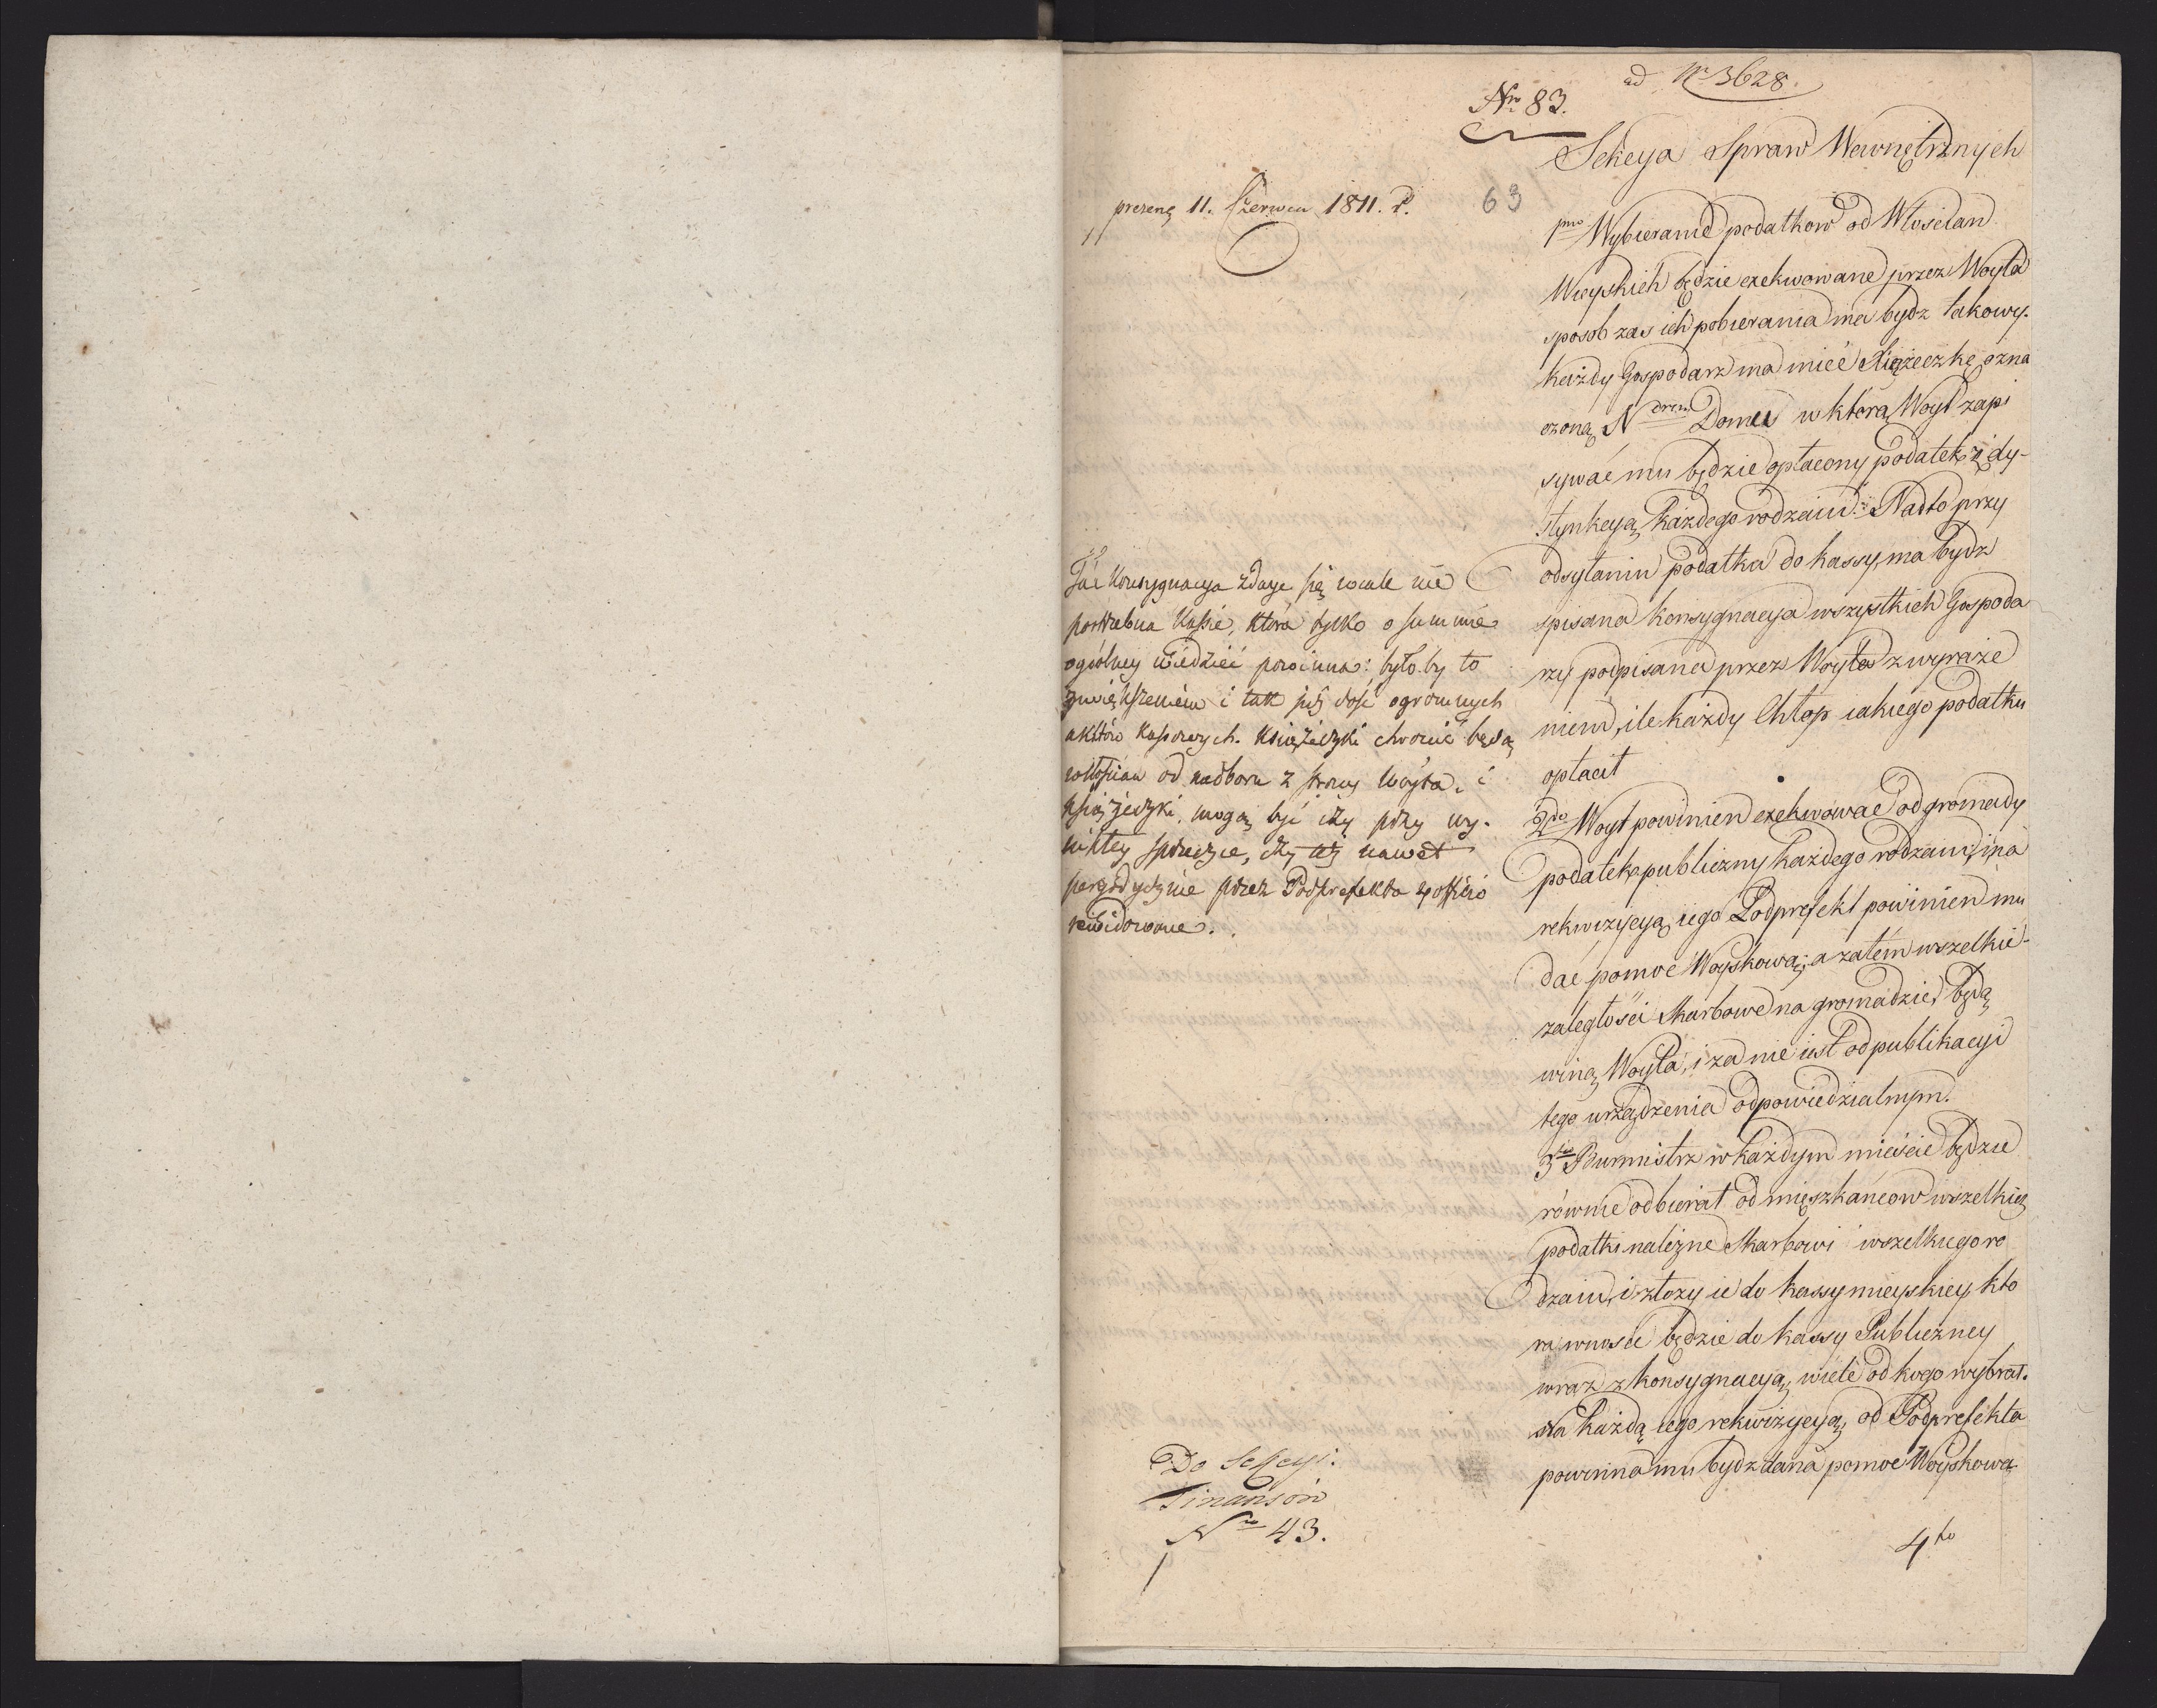 ad Nr 3628.
Nro 83.
Sekcya Spraw Wewnętrznych
prezent 11. Czerwca 1811. r.
63
1mo Wybieranie podatkow od Włoscian
Wieyskich będzie exekwowane przez Woyta
sposob zas ich pobierania ma bydz takowy.
każdy Gospodarz ma mieć Xiążeczkę ozna
czoną Ndrem Domu w ktorą Woyt zapi
sywać mu będzie opłacony podatek z dy-
stynkcyą każdego rodzaiu. Nadto przy
odsyłaniu podatku do kassy, ma bydz
spisana konsygnacya wszystkich Gospoda
rzy podpisana przez Woyta z wyraże
niem, ile każdy Chłop iakiego podatku
opłacił
2do Woyt powinien exekwować od gromady
podatek publiczny każdego rodzaiu, i na
rekwizycyą iego Podprefekt powinien mu
dać pomoc Woyskową; a zatém wszelkie
zaległości Skarbowe na gromadzie, będą
winą Woyta, i za nie iest od publikacyi
tego urządzenia odpowiedzialnym.
3tio Burmistrz w każdym mieście będzie
równie odbierał od mieszkańcow wszelkie
podatki należne Skarbowi wszelkiego ro
dzaiu, i złoży ie do kassy mieyskiey, kto
ra wnosić będzie do kassy Publiczney
wraz z konsygnacyą, wiele od kogo wybrał.
Na każdą iego rekwizycyą, od Podprefekta
powinna mu bydz dana pomoc Woyskowa
4to
Ta konsygnacya zdaye się wcale nie
potrzebna kassie, która tylko o summie
ogólney wiedzieć powinna: było by to
zwiększeniem i tak już dość ogromnych
aktów kassowych. Książeczki chronić będą
włościan od nadboru z strony Woyta, i
książeczki, mogą być czy przy wy-
nikłey sprzeczce, czy też nawet
peryodycznie przez Podprefekta ex officio
rewidowane.
Do Sekcyi
Finansów
Nro 43.